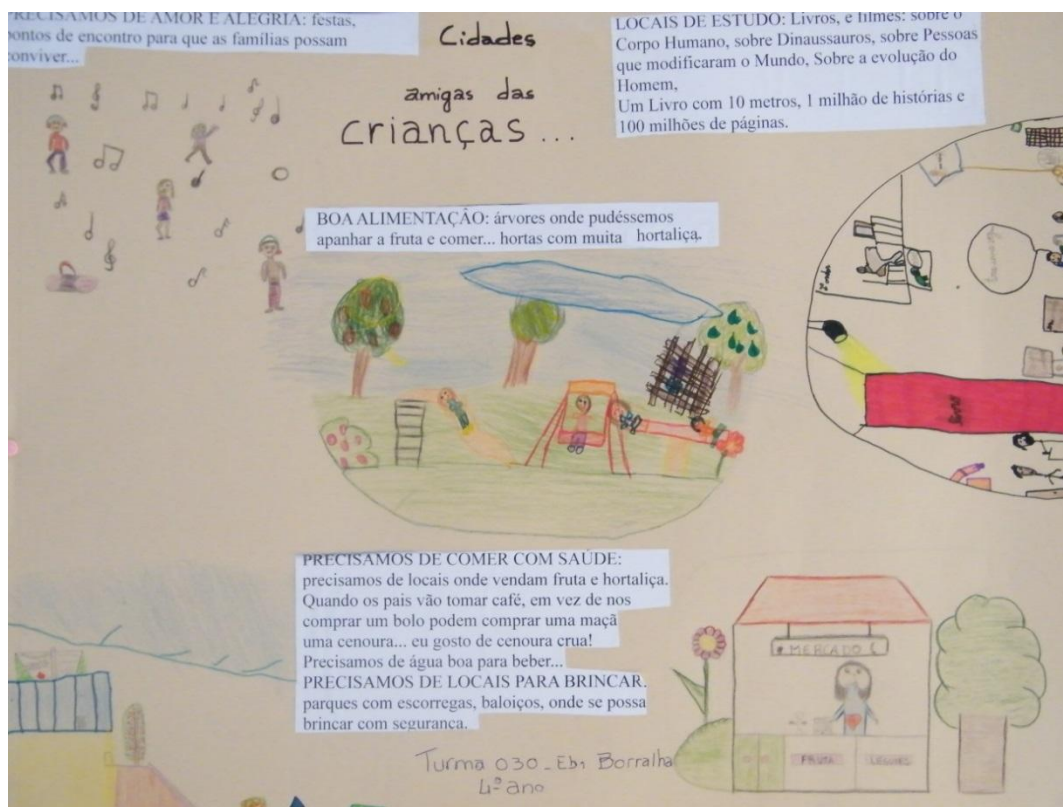 PRECISAMOS DE AMOR E ALEGRIA: festas,
pontos de encontro para que as famílias possam
conviver...
Cidades
amigas das
crianças...
LOCAIS DE ESTUDO: Livros, e filmes: sobre o
Corpo Humano, sobre Dinaussauros, sobre Pessoas
que modificaram o Mundo, Sobre a evolução do
Homem,
Um Livro com 10 metros, 1 milhão de histórias e
100 milhões de páginas.
BOA ALIMENTAÇÃO: árvores onde pudéssemos
apanhar a fruta e comer... hortas com muita hortaliça.
PRECISAMOS DE COMER COM SAÚDE:
precisamos de locais onde vendam fruta e hortaliça.
Quando os pais vão tomar café, em vez de nos
comprar um bolo podem comprar uma maçã
uma cenoura... eu gosto de cenoura crua!
Precisamos de água boa para beber...
PRECISAMOS DE LOCAIS PARA BRINCAR.
parques com escorregas, baloiços, onde se possa
brincar com segurança.
MERCADO
FRUTA
LEGUMES
Turma 030 - Eb1 Borralha
4º ano